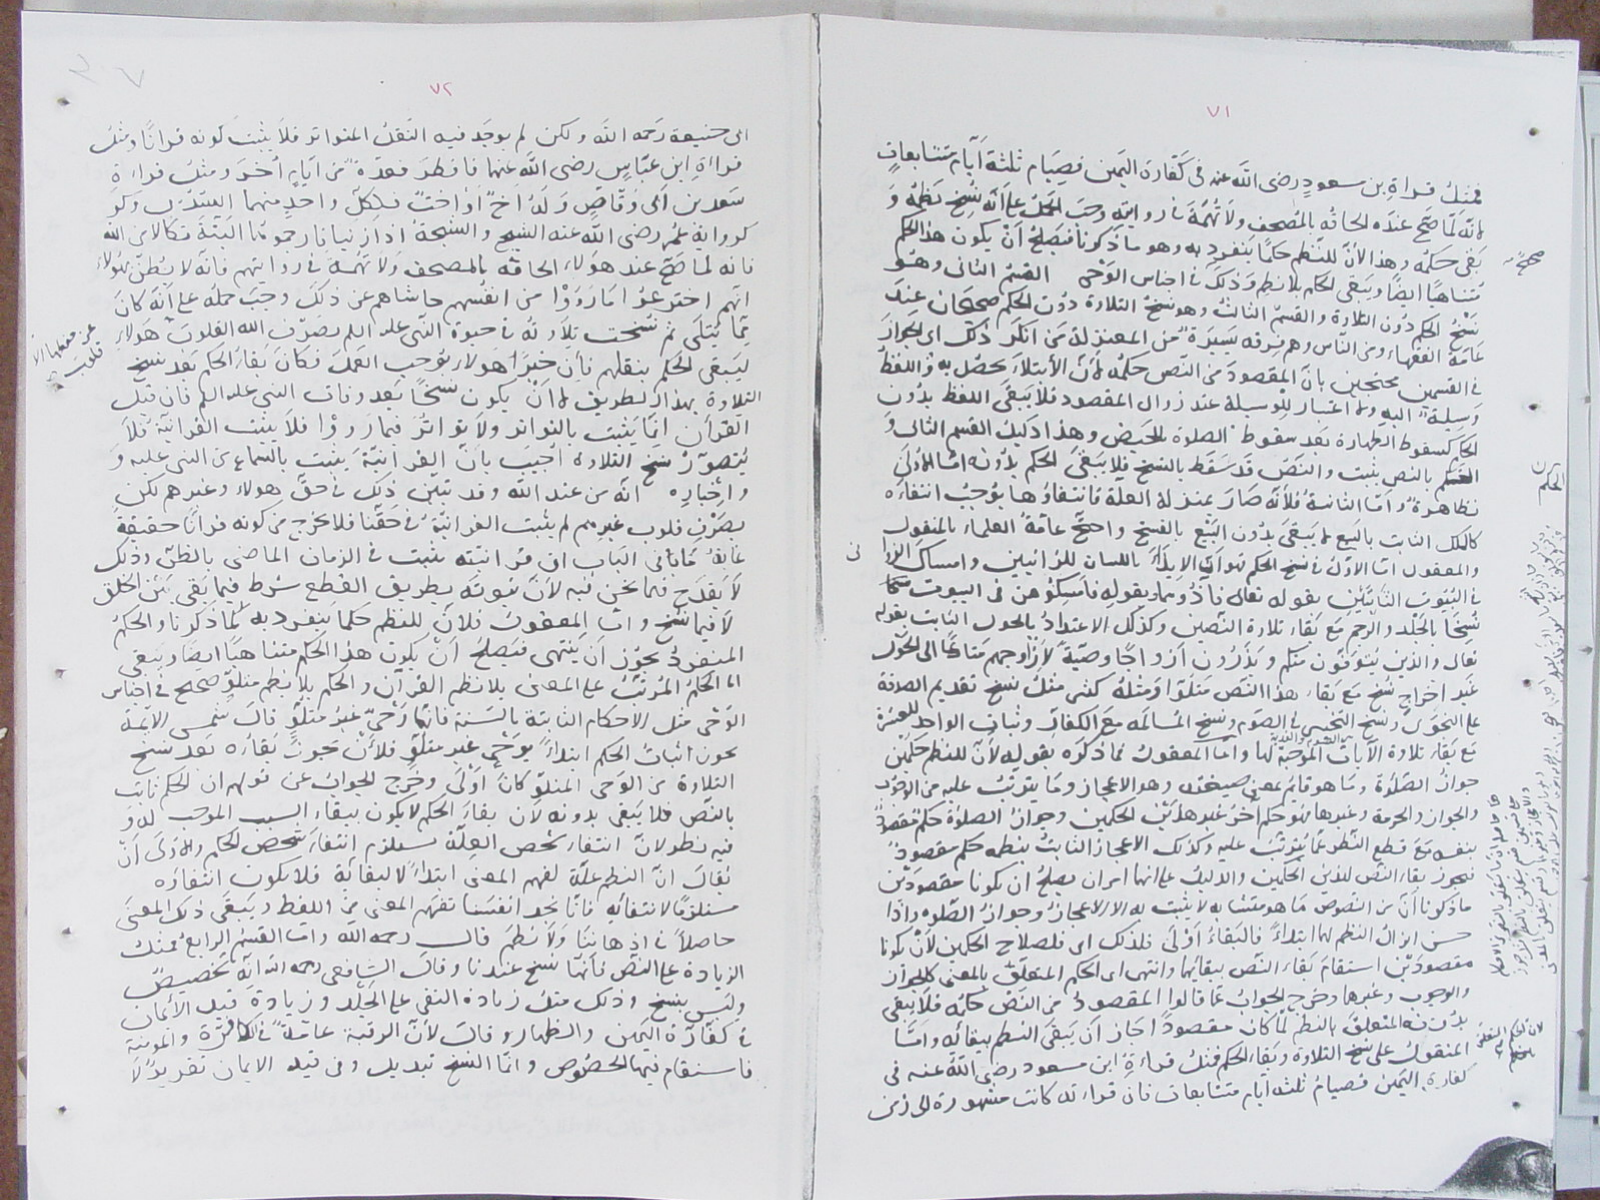 ٧١
فمثل قراءة بن سعود رضى الله عنه فى كفارة اليمين فصيام ثلثة ايام متتابعات
لانه لما صح عنده الحاقه بالمصحف ولا تهمة فى روايته وجب الحمل على انه نسخ نظمه و
بقى حكمه وهذا لان للنظم حكما يتفرد به وهو ما ذكرنا فيصلح ان يكون هذا الحكم
متناهيا ايضا ويبقى الحكم بلا نظم وذلك فى اجناس الوحى القسم الثانى وهو
نسخ الحكم دون التلاوة والقسم الثالث وهو نسخ التلاوة دون الحكم صحيحان عند
عامة الفقهاء ومن الناس وهم فرقه يسيرة من المعتزلة من انكر ذلك اى الجواز
فى القسمين محتجين بان المقصود من النص حكمه لان الابتلاء يحصل به واللفظ
وسيلة اليه ولا اعتبار للوسيلة عند زوال المقصود فلا يبقى اللفظ بدون
الحكم كسقوط الطهارة بعد سقوط الصلوة للحيض وهذا دليل القسم الثانى و
بالنص يثبت والنص قد سقط بالنسخ فلا يبقى الحكم بدونه اما الاولى
فظاهرة واما الثانية فلانه صار بمنزلة العلة فانتفاؤها يوجب انتفاءه
كالملك الثابت بالبيع لا يبقى بدون البيع بالفسخ واحتج عامة العلماء بالمنقول
والمعقول اما الاول فى نسخ الحكم فهو ان الايذاء باللسان للزانيين وامساك الزوانى
فى البيوت الثابتين بقوله تعالى فاذوهما وبقوله فامسكوهن فى البيوت
نسخا بالجلد والرجم مع بقاء تلاوة النصين وكذلك الاعتداد بالحول الثابت بقوله
تعالى والذين يتوفون منكم ويذرون ازواجا وصية لازواجهم متاعا الى الحول
غير اخراج نسخ مع بقاء هذا النص متلوا ومثله كثير مثل نسخ تقديم الصدقة
على النجوى ونسخ التخيير فى الصوم ونسخ المسالمة مع الكفار وثبات الواحد للعشرة
مع بقاء تلاوة الآيات الموجبة لها واما المعقول فما ذكره بقوله لان للنظم حكمين
جواز الصلوة وما هو قايم بمعنى صيغته وهو الاعجاز وما يترتب عليه من
والجواز والحرمة وغيرها فهو حكم آخر غير هذين الحكمين وجواز الصلوة حكم مقصود
بنفسه مع قطع النظر عما يترتب عليه وكذلك الاعجاز الثابت بنظمه حكم مقصود
فيجوز بقاء النص لهذين الحكمين والدليل على انهما امران يصلح ان يكونا مقصودين
ما ذكرنا ان من النصوص ما هو متشابه لا يثبت به الا الاعجاز وجواز الصلوة واذا
حسن انزال النظم لهما ابتداء فالبقاء اولى فلذلك اى فلصلاح الحكمين لان يكونا
مقصودين استقام بقاء النص ببقائهما وانتهى اى الحكم المتعلق بالمعنى كالجواز
والوجوب وغيرها وخرج الجواب عما قالوا المقصود من النص حكمه فلا يبقى
بدونه المتعلق بالنظم لما كان مقصودا جاز ان يبقى النظم ببقائه واما
المنقول على نسخ التلاوة وبقاء الحكم فمثل قراءة ابن مسعود رضى الله عنه فى
كفارة اليمين فصيام ثلثه ايام متتابعات فان قراءته كانت مشهورة الى زمن
صح
الحكم
لان الحكم المتعلق
٧٢
ابى حنيفة رحمه الله ولكن لم يوجد فيه النقل المتواتر فلا يثبت كونه قرانا ومثل
قراءة ابن عباس رضى الله عنهما فافطر فعدة من ايام اخر ومثل قراءة
سعد بن ابى وقاص وله اخ او اخت فلكل واحد منهما السدس وكو
كرواية عمر رضى الله عنه الشيخ والشيخة اذا زنيا فارجموهما البتة نكالا من الله
فانه لما صح عند هؤلاء الحاقه بالمصحف ولا تهمة فى روايتهم فانه لا يظن بهؤلاء
انهم اخترعوا ما رووا من انفسهم حاشاهم عن ذلك وجب حمله على انه كان
مما يتلى ثم نسخت تلاوته فى حيوة النبى عليه السلم بصرف الله القلوب هؤلاء
ليبقى الحكم بنقلهم فان خبر هؤلاء يوجب العمل فكان بقاء الحكم بعد نسخ
التلاوة بهذا الطريق لا ان يكون نسخا بعد وفات النبى عليه السلم فان قيل
القرآن انما يثبت بالتواتر ولا تواتر فيما رووا فلا يثبت القرآنية فلا
يتصور نسخ التلاوة اجيب بان القرانية يثبت بالسماع من النبى عليه و
واخباره انه من عند الله وقد تبين ذلك فى حق هؤلاء وغيرهم لكن
بصرف قلوب غيرهم لم يثبت القرانية فى حقنا فلا يخرج من كونه قرانا حقيقة
غاية ما فى الباب ان قرانيته يثبت فى الزمان الماضى بالظن وذلك
لا يقدح فيما نحن فيه لان ثبوته بطريق القطع شرط فيما بقى بين الخلق
لا فيما نسخ واما المعقول فلان للنظم حكما يتفرد به لما ذكرنا والحكم
المنفرد يجوز ان ينتهى فيصلح ان يكون هذا الحكم متناهيا ايضا ويبقى
اما الحكم المرتب على المعنى بلا نظم القرآن والحكم بلا نظم متلو صحيح فى اجناس
الوحى مثل الاحكام الثابتة بالسنة فانها وحى غير متلو قال شمس الائمة
يجوز اثبات الحكم ابتداء بوحى غير متلو فلان يجوز بقاءه بعد نسخ
التلاوة من الوحى المتلو كان اولى وخرج الجواب عن قولهم ان الحكم ثابت
بالنص فلا يبقى بدونه لان بقاء الحكم لا يكون ببقاء السبب الموجب له و
فيه نظر لان انتفاء شخص العلة يستلزم انتفاء شخص الحكم والاولى ان
يقال ان النظم علة لفهم المعنى ابتداء لا لبقائه فلا يكون انتفاءه
مستلزما لانتفائه فانا نجد انفسنا تفهم المعنى من اللفظ ويبقى ذلك المعنى
حاصلا فى اذهاننا ولا نظم قال رحمه الله واما القسم الرابع فمثل
الزيادة على النص فانها نسخ عندنا وقال الشافعى رحمه الله انه تخصيص
وليس بنسخ وذلك مثل زيادة النفى على الجلد وزيادة قيد الايمان
فى كفارة اليمين والظهار وقال لان الرقبة عامة فى الكافرة والمومنة
فاستقام فيها الخصوص وانما النسخ تبديل وفى قيد الايمان تقرير لا